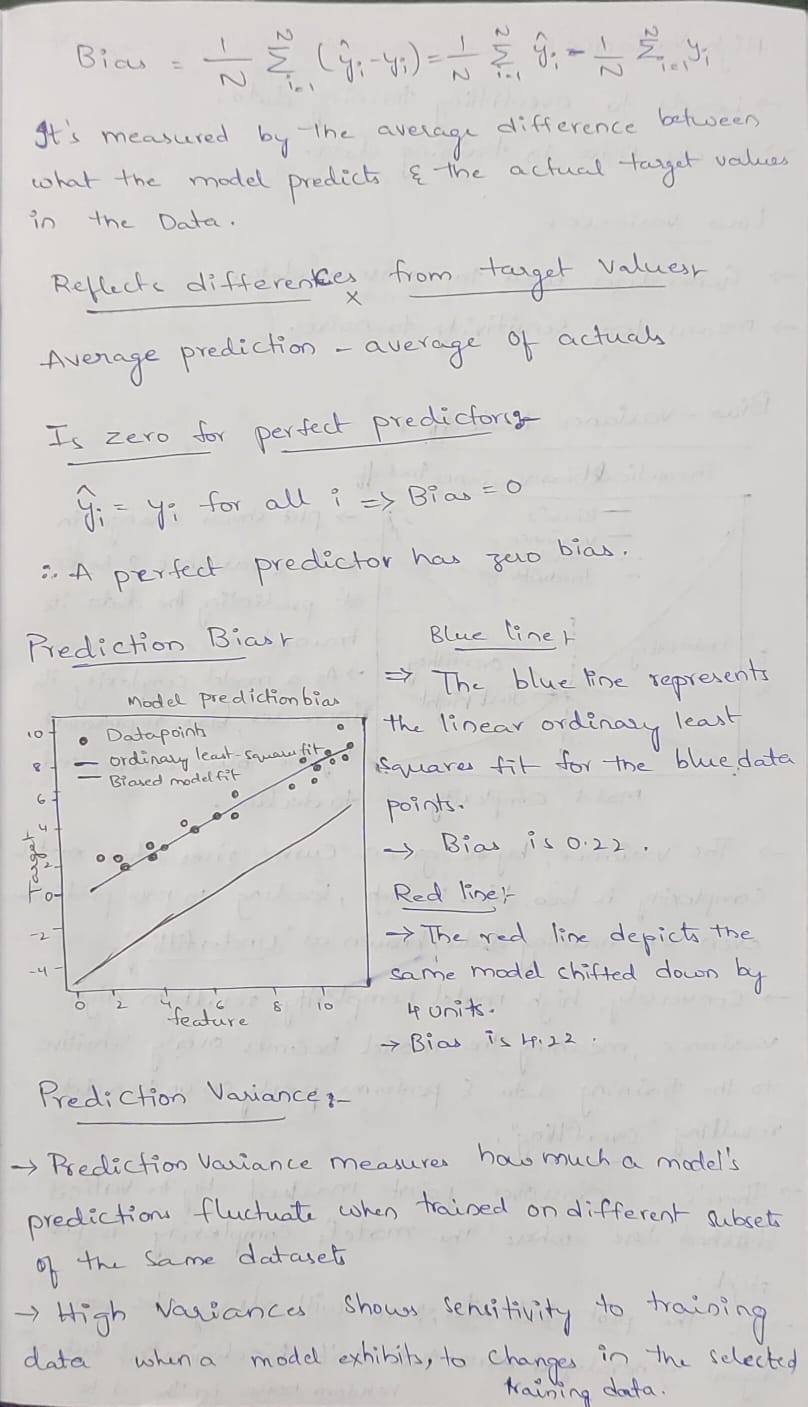 Bias = 1/N Σ_{i=1}^{N} (ŷ_i - y_i) = 1/N Σ_{i=1}^{N} ŷ_i - 1/N Σ_{i=1}^{N} y_i
It's measured by the average difference between
what the model predicts & the actual target values
in the Data.
Reflects differences from target values:-
Average prediction - average of actuals
Is zero for perfect predictors:-
ŷ_i = y_i for all i => Bias = 0
∴ A perfect predictor has zero bias.
Prediction Bias:-
Model prediction bias
Datapoints
ordinary least-square fit
Biased model fit
10
8
6
4
2
0
-2
-4
Target
0 2 4 6 8 10
feature
Blue line:-
⇒ The blue line represents
the linear ordinary least
squares fit for the blue data
points.
→ Bias is 0.22.
Red line:-
→ The red line depicts the
same model chifted down by
4 units.
→ Bias is 4.22.
Prediction Variance:-
→ Prediction Variance measures how much a model's
predictions fluctuate when trained on different subsets
of the same datasets
→ High Variances shows sensitivity to training
data when a model exhibits, to changes in the selected
training data.